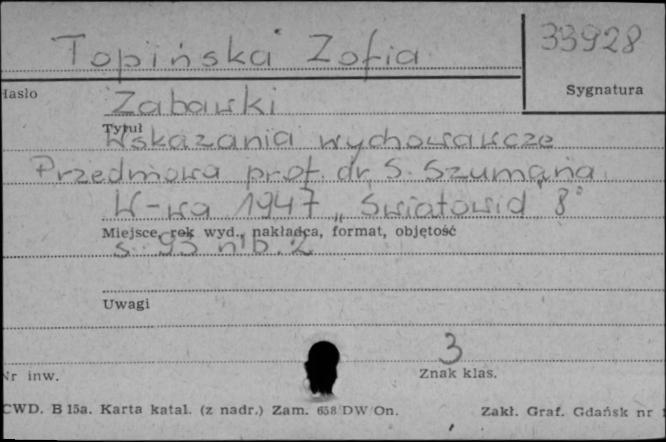 Topińska Zofia
33928
Hasło
Sygnatura
Zabawki
Tytuł
Wskazania wychowawcze
Przedmowa prof. dr S. Szumana.
W-wa 1947 „Światowid" 8°
Miejsce, rok wyd., nakładca, format, objętość
s. 93 nlb. 2
Uwagi
3
Nr inw.
Znak klas.
CWD. B 15a. Karta katal. (z nadr.) Zam. 658 DW On.
Zakł. Graf. Gdańsk nr 1